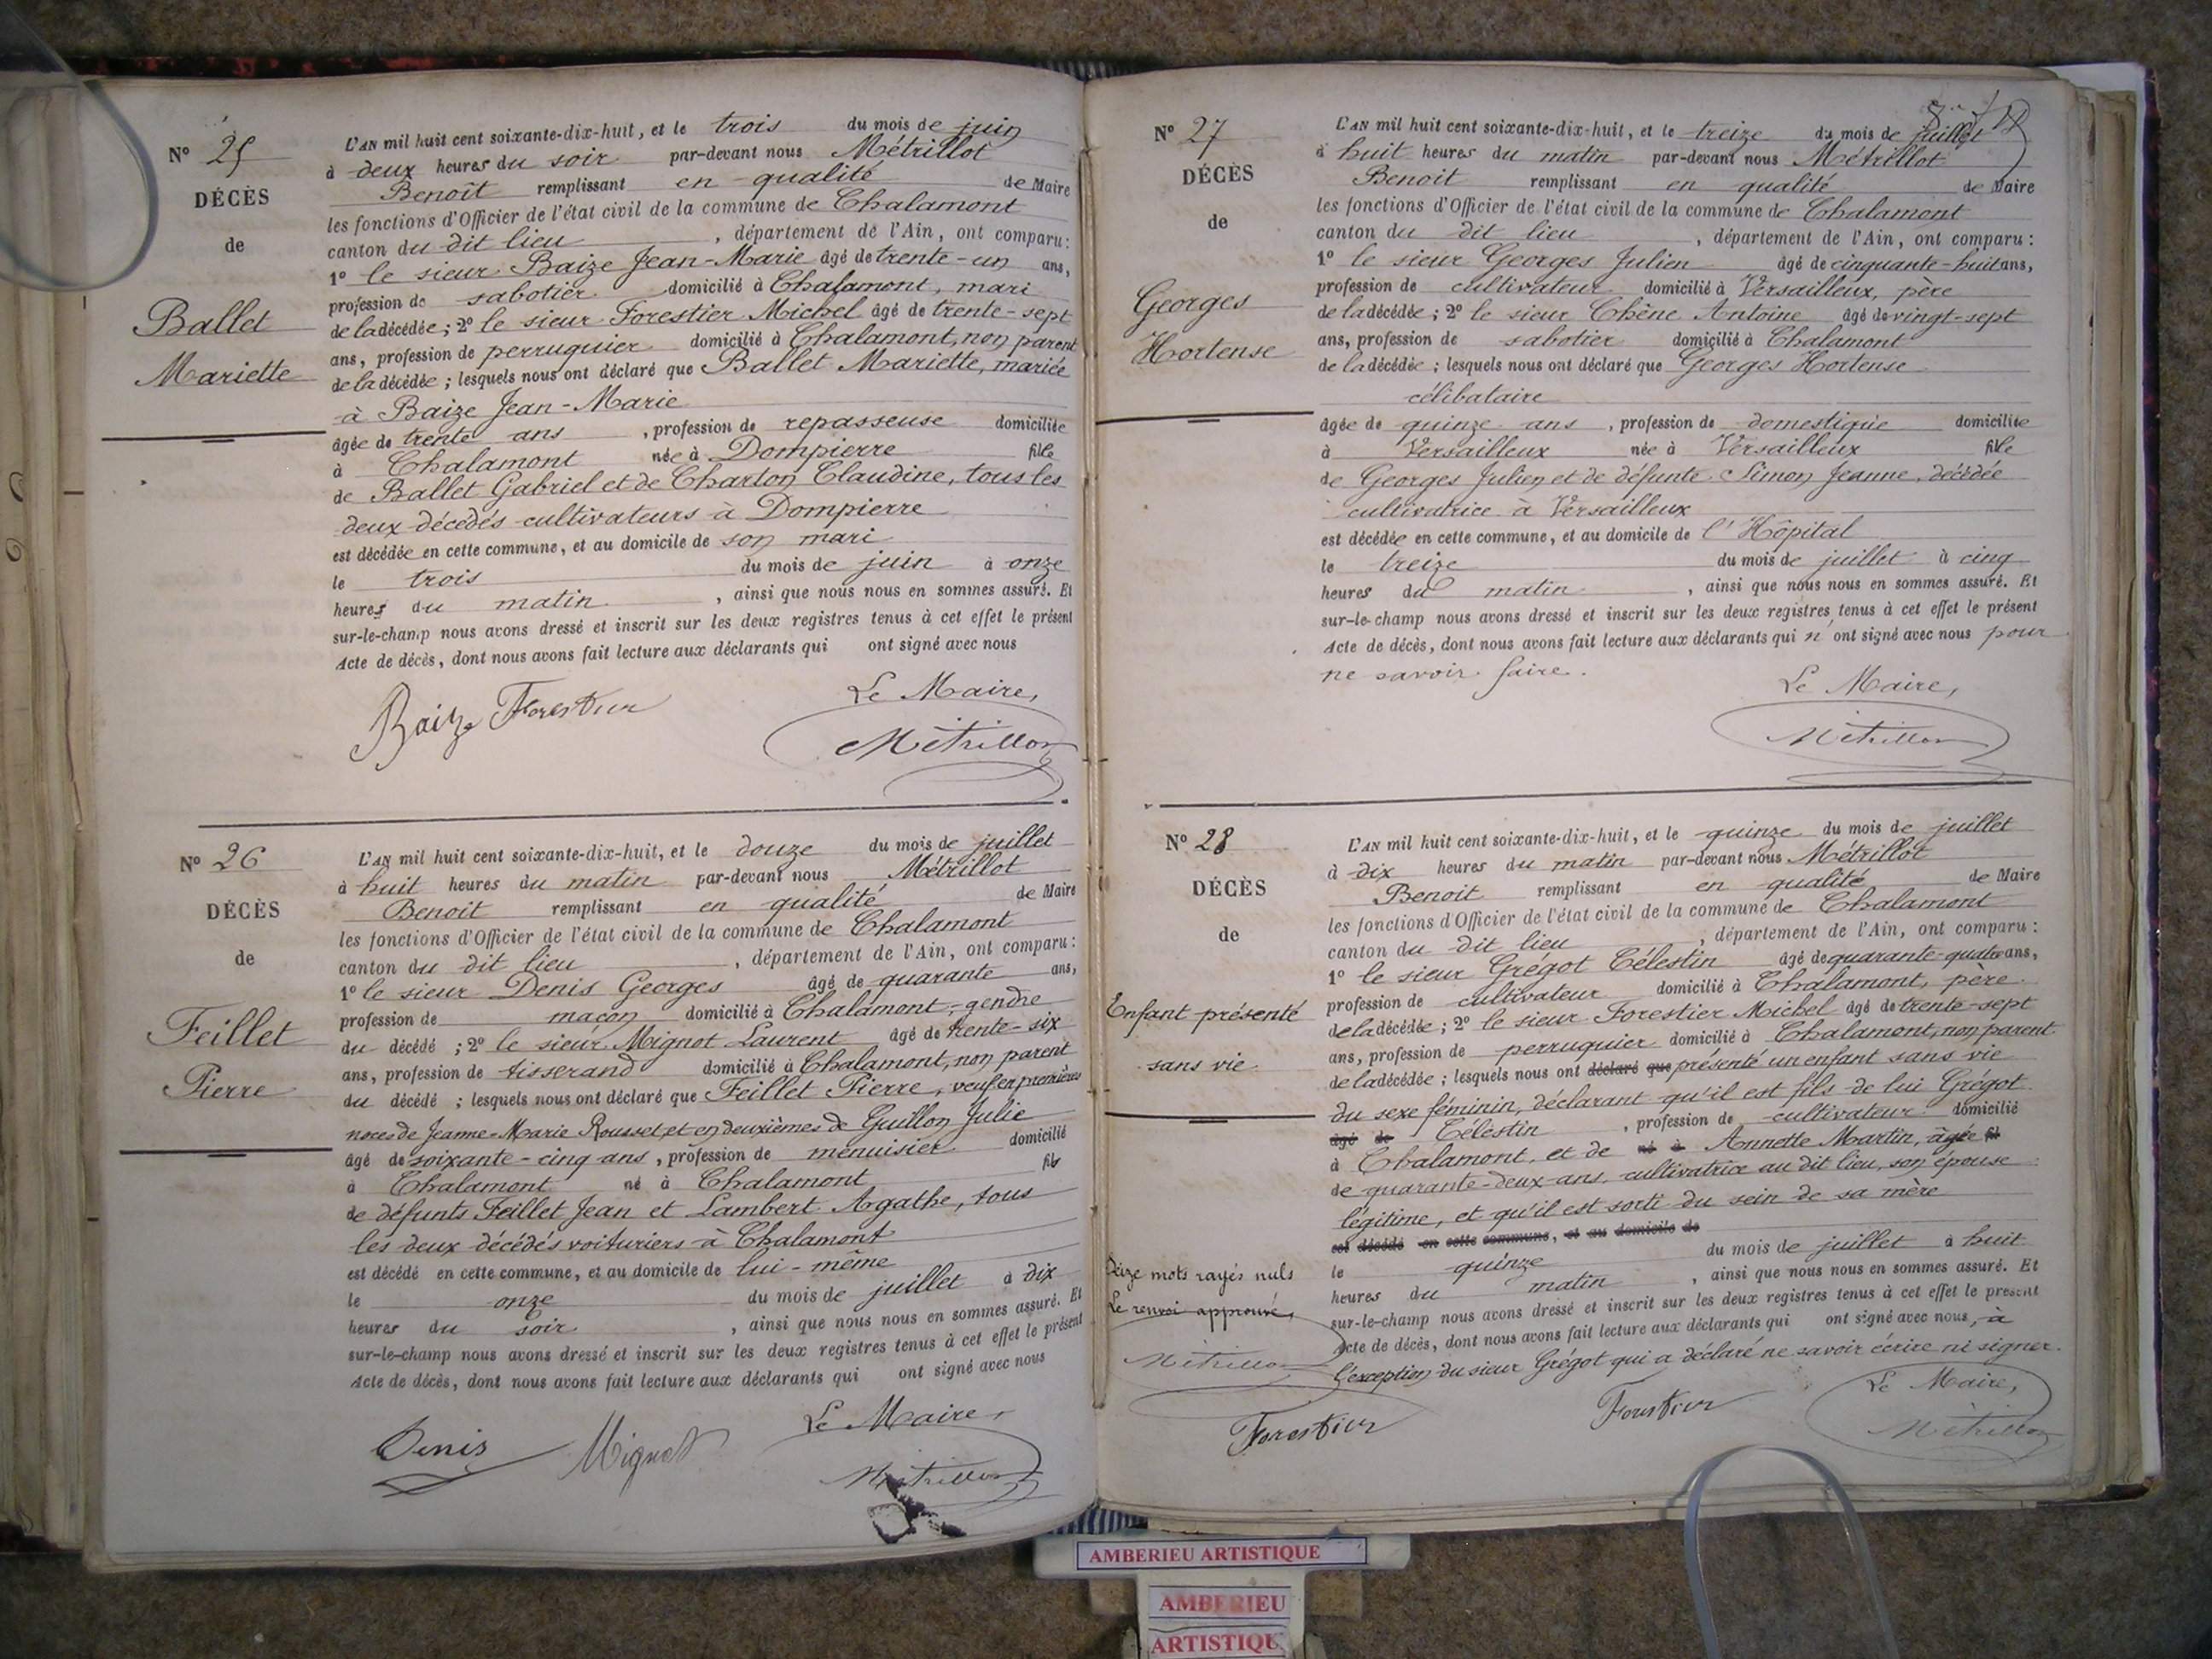 Nº 25
DÉCÈS
de
Ballet
Mariette
L'AN mil huit cent soixante-dix-huit, et le trois du mois de juin
à deux heures du soir par-devant nous Métrillot
Benoît remplissant en qualité de Maire
les fonctions d'Officier de l'état civil de la commune de Chalamont
canton du dit lieu, département de l'Ain, ont comparu :
1º le sieur Baize Jean-Marie âgé de trente-un ans,
profession de sabotier domicilié à Chalamont, mari
de la décédée ; 2º le sieur Forestier Michel âgé de trente-sept
ans, profession de perruquier domicilié à Chalamont, non parent
de la décédée ; lesquels nous ont déclaré que Ballet Mariette, mariée
à Baize Jean-Marie
âgée de trente ans, profession de repasseuse domiciliée
à Chalamont née à Dompierre fille
de Ballet Gabriel et de Charton Claudine, tous les
deux décédés cultivateurs à Dompierre
est décédée en cette commune, et au domicile de son mari
le trois du mois de juin à onze
heures du matin, ainsi que nous nous en sommes assuré. Et
sur-le-champ nous avons dressé et inscrit sur les deux registres tenus à cet effet le présent
Acte de décès, dont nous avons fait lecture aux déclarants qui ont signé avec nous
Le Maire,
Baize Forestier
Métrillot
Nº 26
DÉCÈS
de
Feillet
Pierre
L'AN mil huit cent soixante-dix-huit, et le douze du mois de juillet
à huit heures du matin par-devant nous Métrillot
Benoit remplissant en qualité de Maire
les fonctions d'Officier de l'état civil de la commune de Chalamont
canton du dit lieu, département de l'Ain, ont comparu :
1º le sieur Denis Georges âgé de quarante ans,
profession de maçon domicilié à Chalamont, gendre
du décédé ; 2º le sieur Mignot Laurent âgé de trente-six
ans, profession de tisserand domicilié à Chalamont, non parent
du décédé ; lesquels nous ont déclaré que Feillet Pierre, veuf en premières
noces de Jeanne-Marie Rousset et en deuxièmes de Guillon Julie
âgé de soixante-cinq ans, profession de menuisier domicilié
à Chalamont né à Chalamont fils
de défunts Feillet Jean et Lambert Agathe, tous
les deux décédés voituriers à Chalamont
est décédé en cette commune, et au domicile de lui-même
le onze du mois de juillet à dix
heures du soir, ainsi que nous nous en sommes assuré. Et
sur-le-champ nous avons dressé et inscrit sur les deux registres tenus à cet effet le présent
Acte de décès, dont nous avons fait lecture aux déclarants qui ont signé avec nous
Le Maire,
Denis Mignot
Métrillot
Nº 27
DÉCÈS
de
Georges
Hortense
L'AN mil huit cent soixante-dix-huit, et le treize du mois de juillet
à huit heures du matin par-devant nous Métrillot
Benoit remplissant en qualité de Maire
les fonctions d'Officier de l'état civil de la commune de Chalamont
canton du dit lieu, département de l'Ain, ont comparu :
1º le sieur Georges Julien âgé de cinquante-huit ans,
profession de cultivateur domicilié à Versailleux, père
de la décédée ; 2º le sieur Chêne Antoine âgé de vingt-sept
ans, profession de sabotier domicilié à Chalamont
de la décédée ; lesquels nous ont déclaré que Georges Hortense
célibataire
âgée de quinze ans, profession de domestique domiciliée
à Versailleux née à Versailleux fille
de Georges Julien et de défunte Simon Jeanne, décédée
cultivatrice à Versailleux
est décédée en cette commune, et au domicile de l'Hôpital
le treize du mois de juillet à cinq
heures du matin, ainsi que nous nous en sommes assuré. Et
sur-le-champ nous avons dressé et inscrit sur les deux registres tenus à cet effet le présent
Acte de décès, dont nous avons fait lecture aux déclarants qui n'ont signé avec nous pour
ne savoir faire.
Le Maire,
Métrillot
Nº 28
DÉCÈS
de
Enfant présenté
sans vie
L'AN mil huit cent soixante-dix-huit, et le quinze du mois de juillet
à dix heures du matin par-devant nous Métrillot
Benoit remplissant en qualité de Maire
les fonctions d'Officier de l'état civil de la commune de Chalamont
canton du dit lieu, département de l'Ain, ont comparu :
1º le sieur Grégot Célestin âgé de quarante-quatre ans,
profession de cultivateur domicilié à Chalamont, père
de la décédée ; 2º le sieur Forestier Michel âgé de trente-sept
ans, profession de perruquier domicilié à Chalamont, non parent
de la décédée ; lesquels nous ont déclaré que présenté un enfant sans vie
du sexe féminin, déclarant qu'il est fils de lui Grégot
âgé de Célestin, profession de cultivateur domicilié
à Chalamont, et de né à Annette Martin, âgée fil
de quarante-deux ans, cultivatrice au dit lieu, son épouse
légitime, et qu'il est sorti du sein de sa mère
est décédé en cette commune, et au domicile de
le quinze du mois de juillet à huit
heures du matin, ainsi que nous nous en sommes assuré. Et
sur-le-champ nous avons dressé et inscrit sur les deux registres tenus à cet effet le présent
Acte de décès, dont nous avons fait lecture aux déclarants qui ont signé avec nous, à
l'exception du sieur Grégot qui a déclaré ne savoir écrire ni signer.
Seize mots rayés nuls
Le renvoi approuvé,
Métrillot
Forestier
Forestier
Le Maire,
Métrillot
AMBERIEU ARTISTIQUE
AMBERIEU
ARTISTIQU